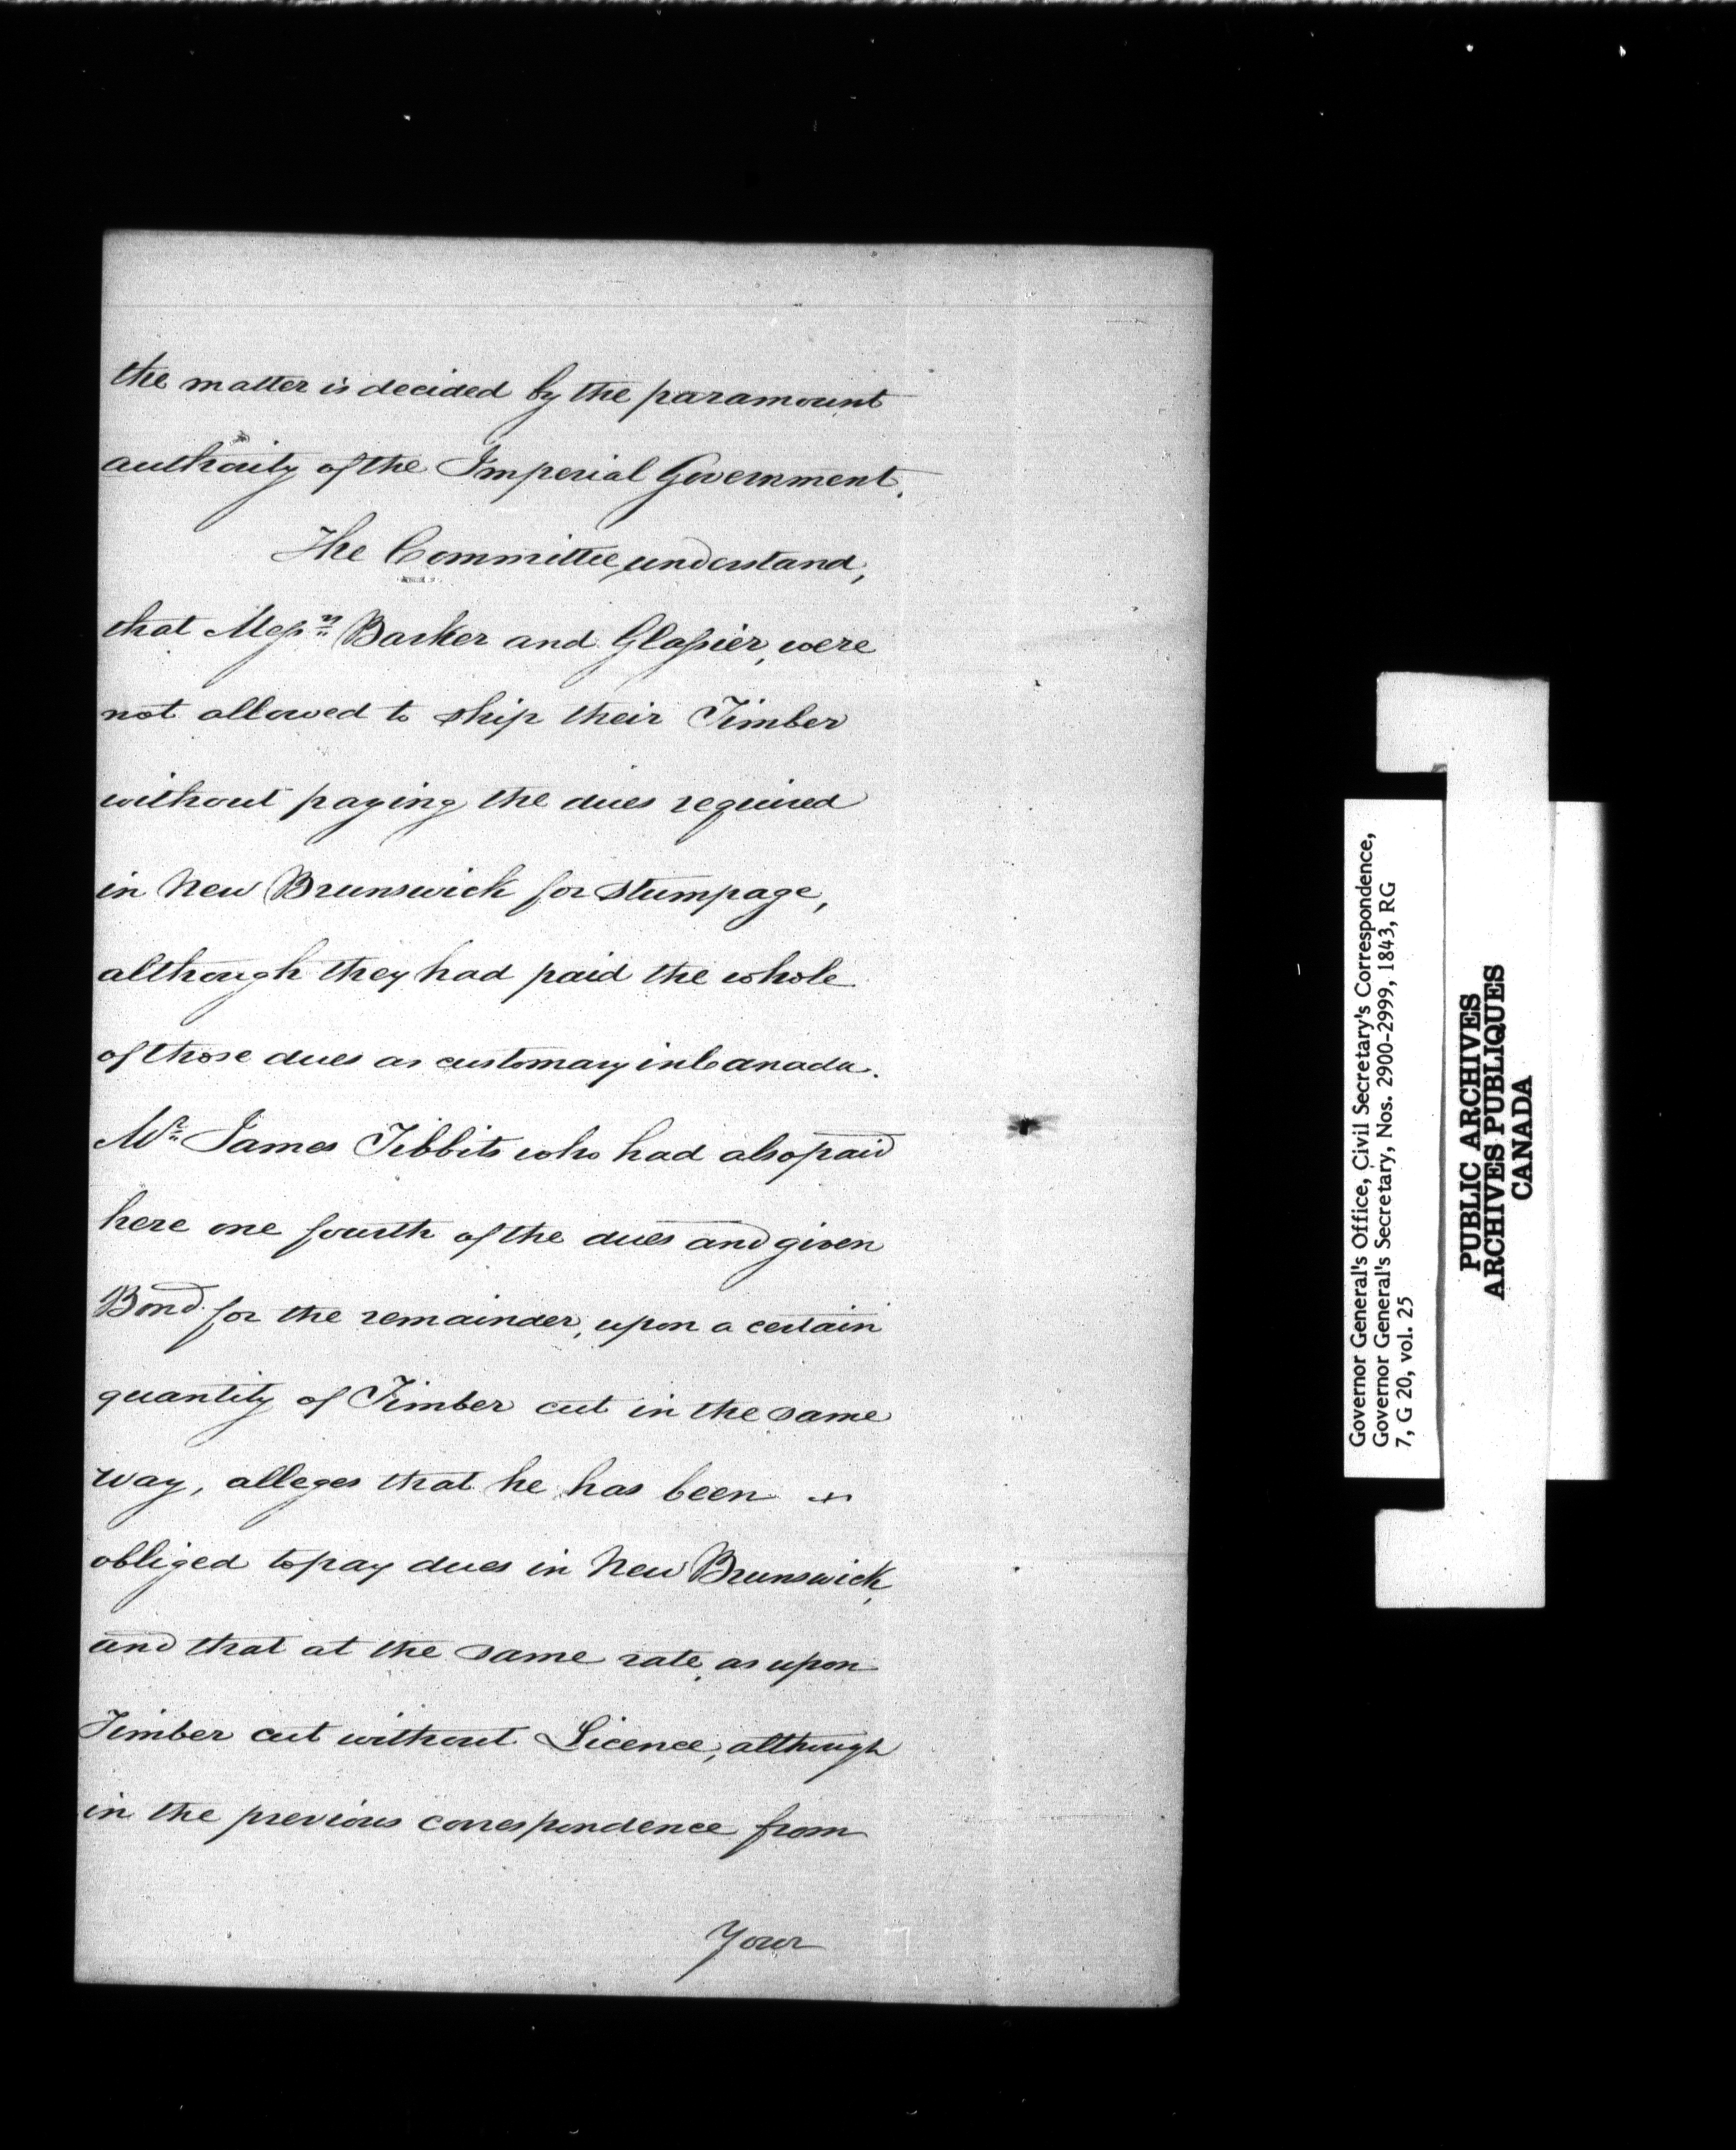 the matter is decided by the paramount
authority of the Imperial Government.
The Committee understand,
that Messrs Barker and Glassier, were
not allowed to ship their Timber
without paying the dues required
in New Brunswick for stumpage,
although they had paid the whole
of those dues as customary in Canada.
Mr James Tibbits who had also paid
here one fourth of the dues and given
Bond for the remainder, upon a certain
quantity of Timber cut in the same
way, alleges that he has been
obliged to pay dues in New Brunswick,
and that at the same rate, as upon
Timber cut without Licence, although
in the previous correspondence from
Your
Governor General's Office, Civil Secretary's Correspondence,
Governor General's Secretary, Nos. 2900-2999, 1843, RG
7, G 20, vol. 25
PUBLIC ARCHIVES
ARCHIVES PUBLIQUES
CANADA